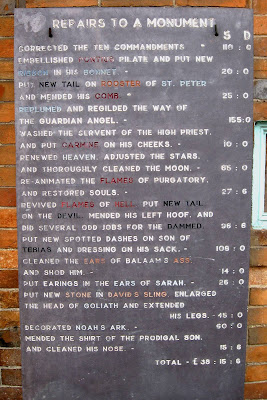 REPAIRS TO A MONUMENT
S D
CORRECTED THE TEN COMMANDMENTS - 110 : 0
EMBELLISHED PONTIUS PILATE AND PUT NEW
RIBBON IN HIS BONNET - 20 : 0
PUT NEW TAIL ON ROOSTER OF ST. PETER
AND MENDED HIS COMB - 25 : 0
REPLUMED AND REGILDED THE WAY OF
THE GUARDIAN ANGEL. - 155:0
WASHED THE SERVENT OF THE HIGH PRIEST.
AND PUT CARMINE ON HIS CHEEKS. - 10 : 0
RENEWED HEAVEN. ADJUSTED THE STARS.
AND THOROUGHLY CLEANED THE MOON. - 65 : 0
RE-ANIMATED THE FLAMES OF PURGATORY.
AND RESTORED SOULS. - 27 : 6
REVIVED FLAMES OF HELL. PUT NEW TAIL
ON THE DEVIL. MENDED HIS LEFT HOOF. AND
DID SEVERAL ODD JOBS FOR THE DAMMED. 96 : 6
PUT NEW SPOTTED DASHES ON SON OF
TEBIAS AND DRESSING ON HIS SACK. - 106 : 0
CLEANED THE EARS OF BALAAM'S ASS.
AND SHOD HIM. - 14 : 0
PUT EARINGS IN THE EARS OF SARAH. - 26 : 0
PUT NEW STONE IN DAVID'S SLING. ENLARGED
THE HEAD OF GOLIATH AND EXTENDED
HIS LEGS. - 45 : 0
DECORATED NOAH'S ARK. - 60 : 0
MENDED THE SHIRT OF THE PRODIGAL SON.
AND CLEANED HIS NOSE. - 15 : 6
TOTAL - £ 38 : 15 : 6